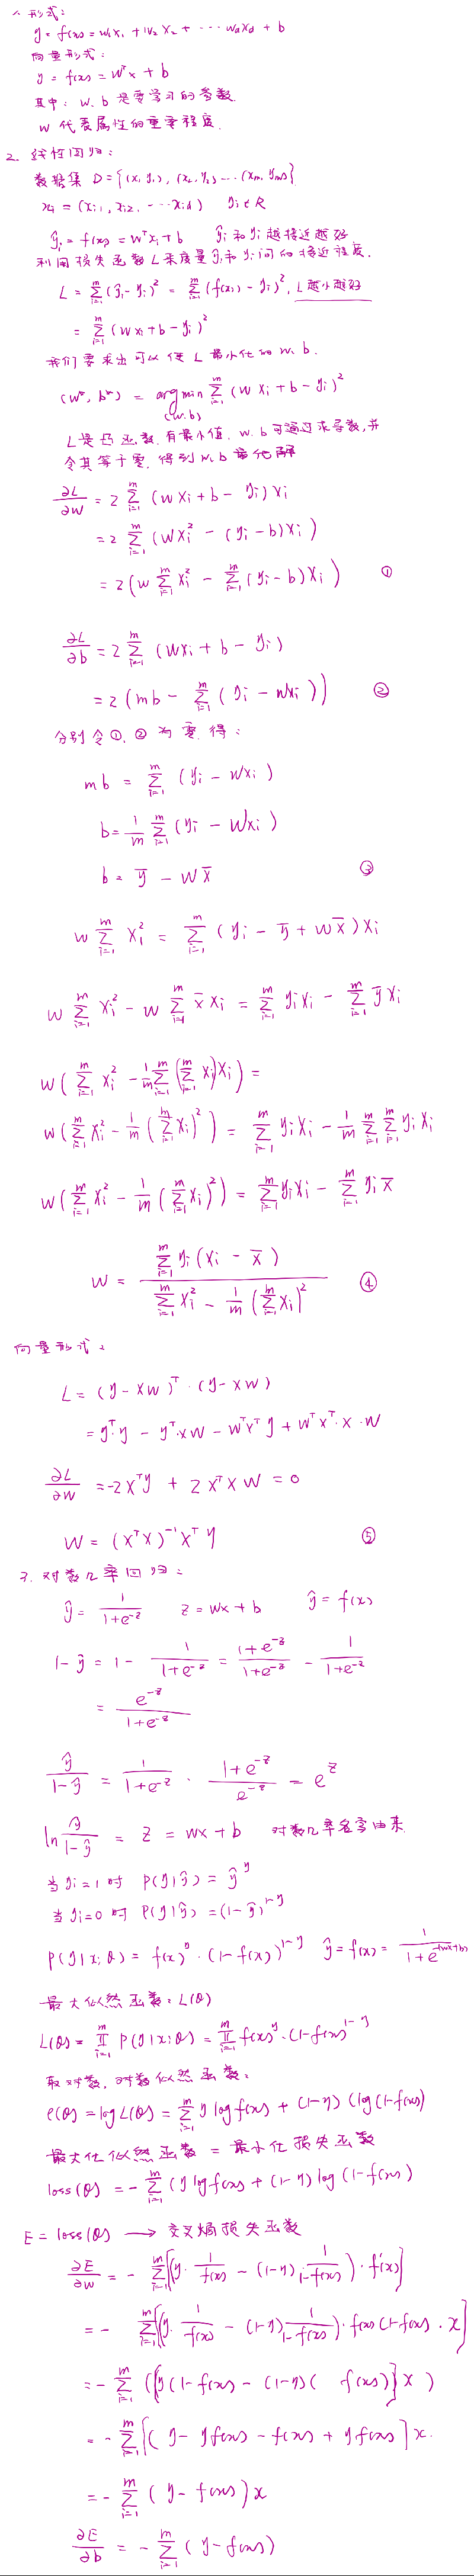 1. 形式:
y = f(x) = w₁x₁ + w₂x₂ + ··· wdxd + b
向量形式:
y = f(x) = wᵀx + b
其中: w. b 是要学习的参数.
w 代表属性的重要程度.
2. 线性回归:
数据集 D = {(x₁, y₁), (x₂, y₂) ··· (xm, ym)}
xᵢ = (xᵢ₁, xᵢ₂, ··· xᵢd) yᵢ ∈ R
ŷᵢ = f(x) = wᵀxᵢ + b ŷᵢ 和 yᵢ 越接近越好
利用损失函数 L 来度量 ŷᵢ 和 yᵢ 间的接近程度.
L = Σᵢ₌₁ᵐ (ŷᵢ - yᵢ)² = Σᵢ₌₁ᵐ (f(xᵢ) - yᵢ)², L 越小越好
= Σᵢ₌₁ᵐ (wxᵢ + b - yᵢ)²
我们要求出可以使 L 最小化的 w. b.
(w*, b*) = arg min (w.b) Σᵢ₌₁ᵐ (wxᵢ + b - yᵢ)²
L是凸函数. 有最小值. w. b 可通过求导数, 并
令其等于零. 得到 w. b 最优解
∂L/∂w = 2 Σᵢ₌₁ᵐ (wxᵢ + b - yᵢ) xᵢ
= 2 Σᵢ₌₁ᵐ (wxᵢ² - (yᵢ - b) xᵢ)
= 2 (w Σᵢ₌₁ᵐ xᵢ² - Σᵢ₌₁ᵐ (yᵢ - b) xᵢ) ①
∂L/∂b = 2 Σᵢ₌₁ᵐ (wxᵢ + b - yᵢ)
= 2 (mb - Σᵢ₌₁ᵐ (yᵢ - wxᵢ)) ②
分别令①, ②为零. 得:
mb = Σᵢ₌₁ᵐ (yᵢ - wxᵢ)
b = 1/m Σᵢ₌₁ᵐ (yᵢ - wxᵢ)
b = ȳ - wx̄ ③
w Σᵢ₌₁ᵐ xᵢ² = Σᵢ₌₁ᵐ (yᵢ - ȳ + wx̄) xᵢ
w Σᵢ₌₁ᵐ xᵢ² - w Σᵢ₌₁ᵐ x̄xᵢ = Σᵢ₌₁ᵐ yᵢxᵢ - Σᵢ₌₁ᵐ ȳxᵢ
w (Σᵢ₌₁ᵐ xᵢ² - 1/m Σᵢ₌₁ᵐ (Σᵢ₌₁ᵐ xᵢ) xᵢ) =
w (Σᵢ₌₁ᵐ xᵢ² - 1/m (Σᵢ₌₁ᵐ xᵢ)²) = Σᵢ₌₁ᵐ yᵢxᵢ - 1/m Σᵢ₌₁ᵐ Σᵢ₌₁ᵐ yᵢxᵢ
w (Σᵢ₌₁ᵐ xᵢ² - 1/m (Σᵢ₌₁ᵐ xᵢ)²) = Σᵢ₌₁ᵐ yᵢxᵢ - Σᵢ₌₁ᵐ yᵢx̄
w = Σᵢ₌₁ᵐ yᵢ(xᵢ - x̄) / (Σᵢ₌₁ᵐ xᵢ² - 1/m (Σᵢ₌₁ᵐ xᵢ)²) ④
向量形式:
L = (y - xw)ᵀ · (y - xw)
= yᵀ·y - yᵀ·xw - wᵀxᵀy + wᵀxᵀ·x·w
∂L/∂w = -2xᵀy + 2xᵀxw = 0
w = (xᵀx)⁻¹xᵀy ⑤
3. 对数几率回归:
ŷ = 1/(1+e⁻ᶻ) z = wx + b ŷ = f(x)
1 - ŷ = 1 - 1/(1+e⁻ᶻ) = (1+e⁻ᶻ)/(1+e⁻ᶻ) - 1/(1+e⁻ᶻ)
= e⁻ᶻ/(1+e⁻ᶻ)
ŷ/(1-ŷ) = 1/(1+e⁻ᶻ) · (1+e⁻ᶻ)/e⁻ᶻ = eᶻ
ln ŷ/(1-ŷ) = z = wx + b 对数几率名字由来
当 yᵢ=1 时 P(y|ŷ) = ŷʸ
当 yᵢ=0 时 P(y|ŷ) = (1-ŷ)¹⁻ʸ
P(y|x;θ) = f(x)ʸ · (1-f(x))¹⁻ʸ ŷ = f(x) = 1/(1+e⁻⁽ʷˣ⁺ᵇ⁾)
最大似然函数: L(θ)
L(θ) = Πᵢ₌₁ᵐ P(y|x;θ) = Πᵢ₌₁ᵐ f(x)ʸ·(1-f(x))¹⁻ʸ
取对数, 对数似然函数:
ℓ(θ) = log L(θ) = Σᵢ₌₁ᵐ y log f(x) + (1-y) (log (1-f(x))
最大化似然函数 = 最小化损失函数
loss(θ) = - Σᵢ₌₁ᵐ (y log f(x) + (1-y) log (1-f(x))
E = loss(θ) → 交叉熵损失函数
∂E/∂w = - Σᵢ₌₁ᵐ [(y · 1/f(x) - (1-y) · 1/(1-f(x))) · f'(x)]
= - Σᵢ₌₁ᵐ [(y · 1/f(x) - (1-y) 1/(1-f(x))) · f(x) (1-f(x)) · x]
= - Σᵢ₌₁ᵐ ([y (1-f(x)) - (1-y) ( f(x))] x )
= - Σᵢ₌₁ᵐ [( y - yf(x) - f(x) + yf(x) ] x.
= - Σᵢ₌₁ᵐ ( y - f(x)) x
∂E/∂b = - Σᵢ₌₁ᵐ ( y - f(x))